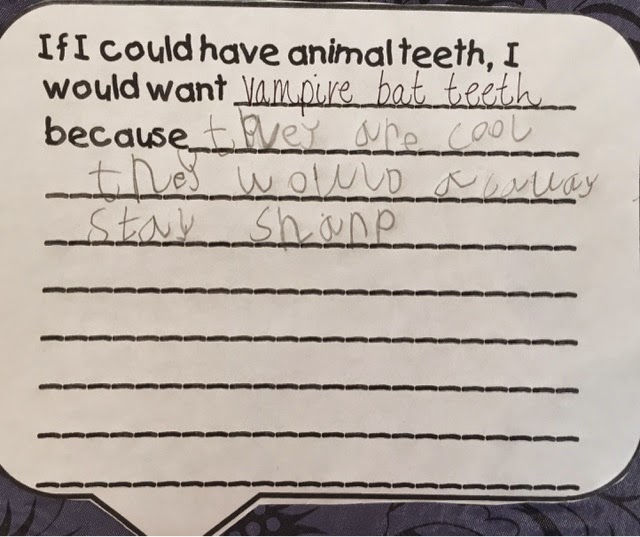 If I could have animal teeth, I
would want vampire bat teeth
because they are cool
they would always
stay sharp